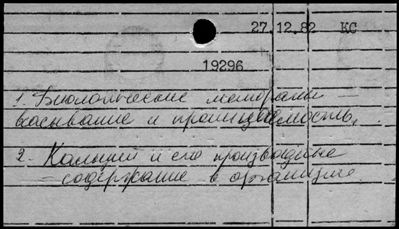 27.12.82 КС
19296
1. Биологические мембраны –
всасывание и проницаемость.
2. Кальций и его производные
– содержание в организме.